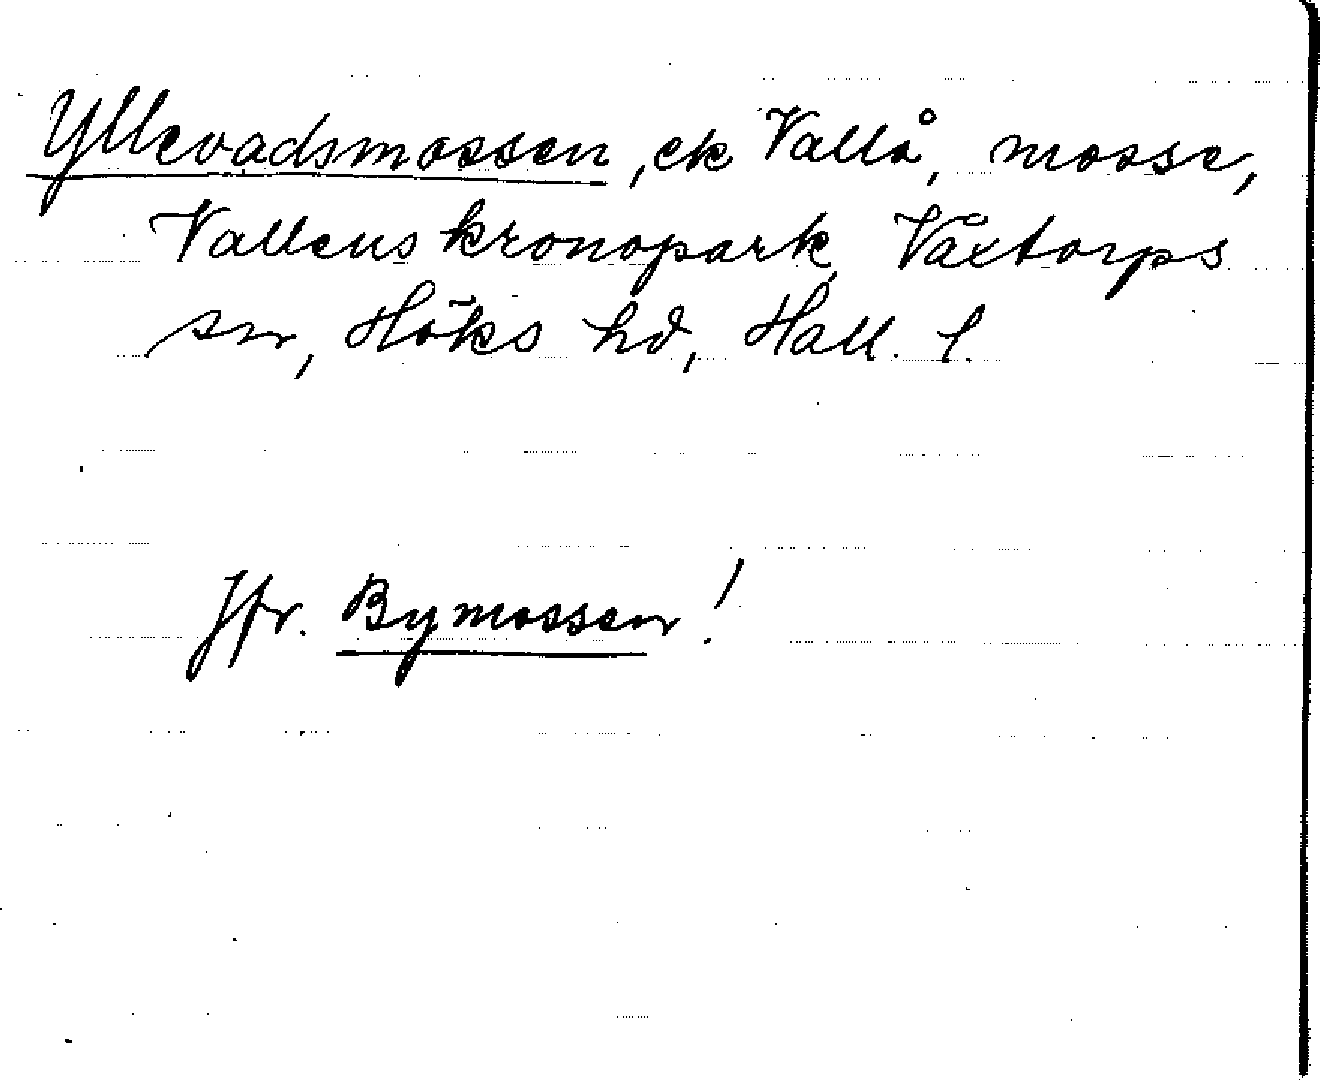 Yllevadsmossen, ek Vallå, mosse,
Vallens kronopark, Växtorps
sn, Höks hd, Hall. l.
Jfr. Bymossen!